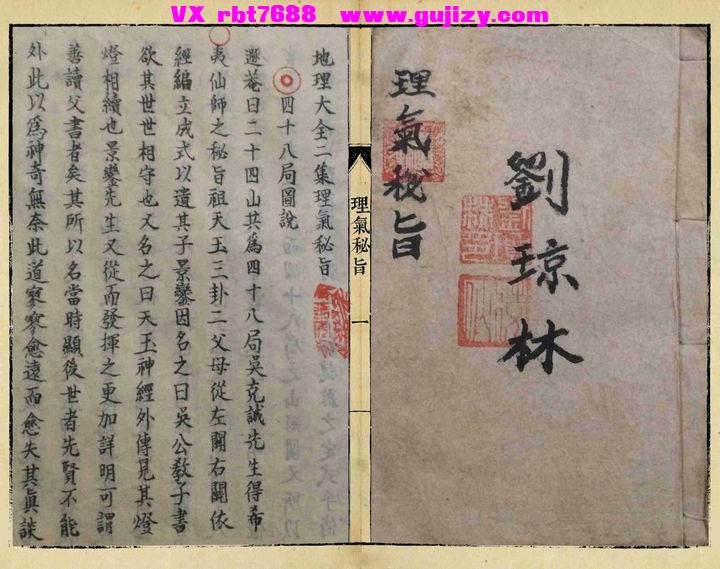 VX rbt7688 www.gujizy.com
理氣秘旨
劉琼林
理氣秘旨
一
地理大全二集理氣秘旨
四十八局圖說
遯菴曰二十四山共為四十八局吳克誠先生得希
夷仙師之秘旨祖天玉三卦二父母從左關右關依
經編立成式以遺其子景鸞因名之曰吳公教子書
欲其世世相守也又名之曰天玉神經外傳見其燈
燈相續也景鸞先生又從而發揮之更加詳明可謂
善讀父書者矣其所以名當時顯後世者先賢不能
外此以為神奇無奈此道寥寥愈遠而愈失其真談